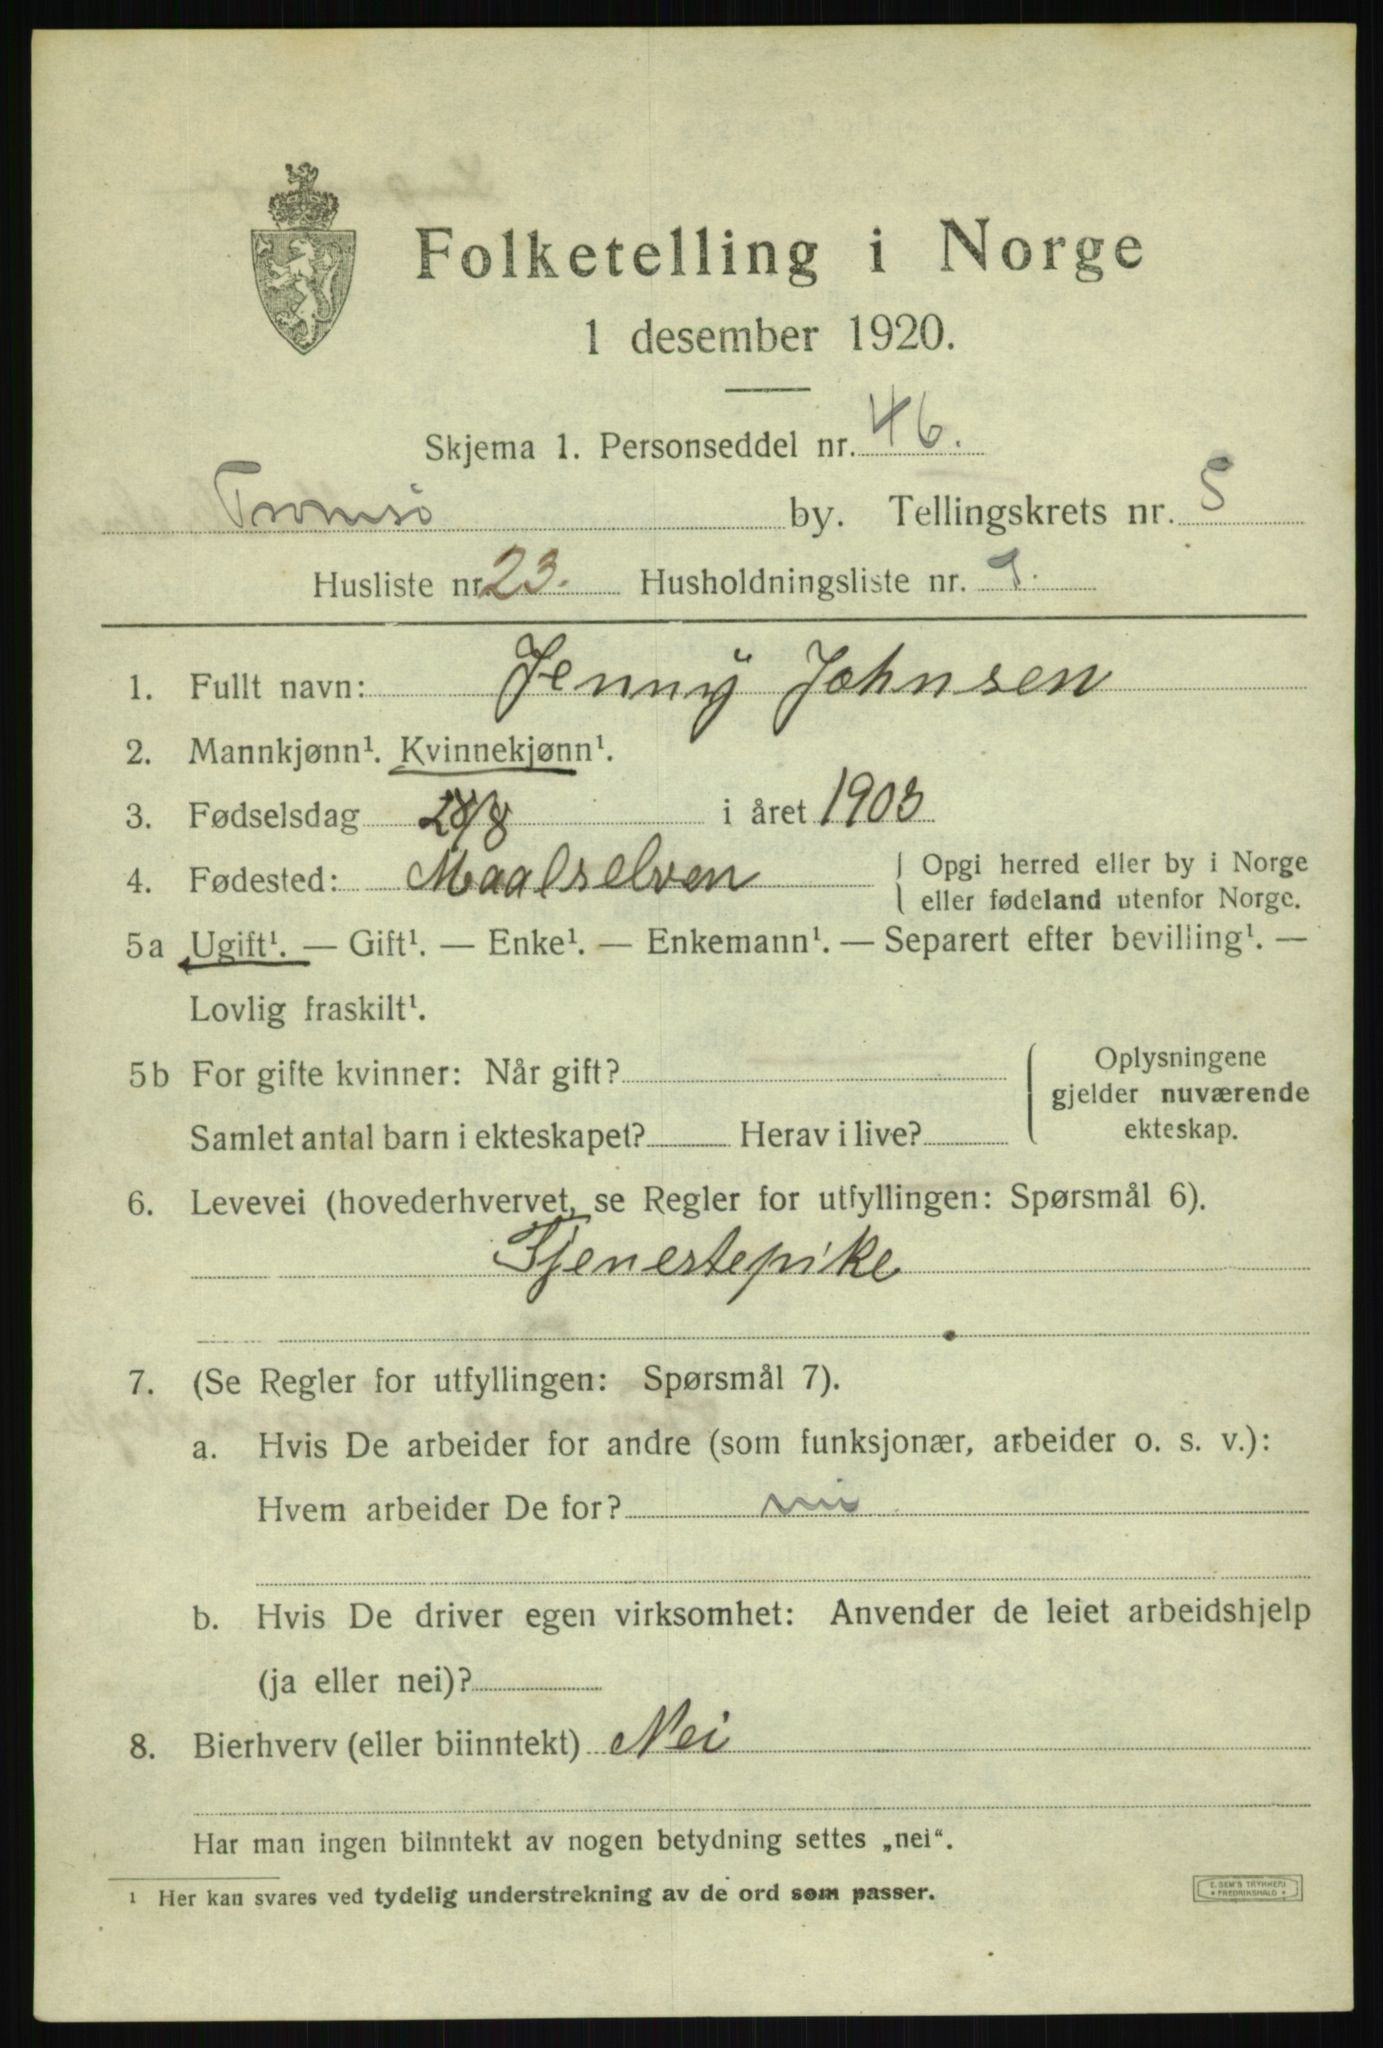 Folketelling i Norge
1 desember 1920.
Skjema 1. Personseddel nr. 46.
Tromsø by. Tellingskrets nr. 5
Husliste nr. 23. Husholdningsliste nr. 1.
1. Fullt navn: Jenny Johnsen
2. Mannkjønn¹. Kvinnekjønn¹.
3. Fødselsdag 28/8 i året 1903
4. Fødested: Maalselven
Opgi herred eller by i Norge
eller fødeland utenfor Norge.
5a Ugift¹. — Gift¹. — Enke¹. — Enkemann¹. — Separert efter bevilling¹. —
Lovlig fraskilt¹.
5b For gifte kvinner: Når gift?
Samlet antal barn i ekteskapet? Herav i live?
Oplysningene
gjelder nuværende
ekteskap.
6. Levevei (hovederhvervet, se Regler for utfyllingen: Spørsmål 6).
Tjenestepike
7. (Se Regler for utfyllingen: Spørsmål 7).
a. Hvis De arbeider for andre (som funksjonær, arbeider o. s. v.):
Hvem arbeider De for?
b. Hvis De driver egen virksomhet: Anvender de leiet arbeidshjelp
(ja eller nei)?
8. Bierhverv (eller biinntekt) Nei
Har man ingen biinntekt av nogen betydning settes „nei“.
¹ Her kan svares ved tydelig understrekning av de ord som passer.
E. SEM'S TRYKKERI
FREDRIKSHALD